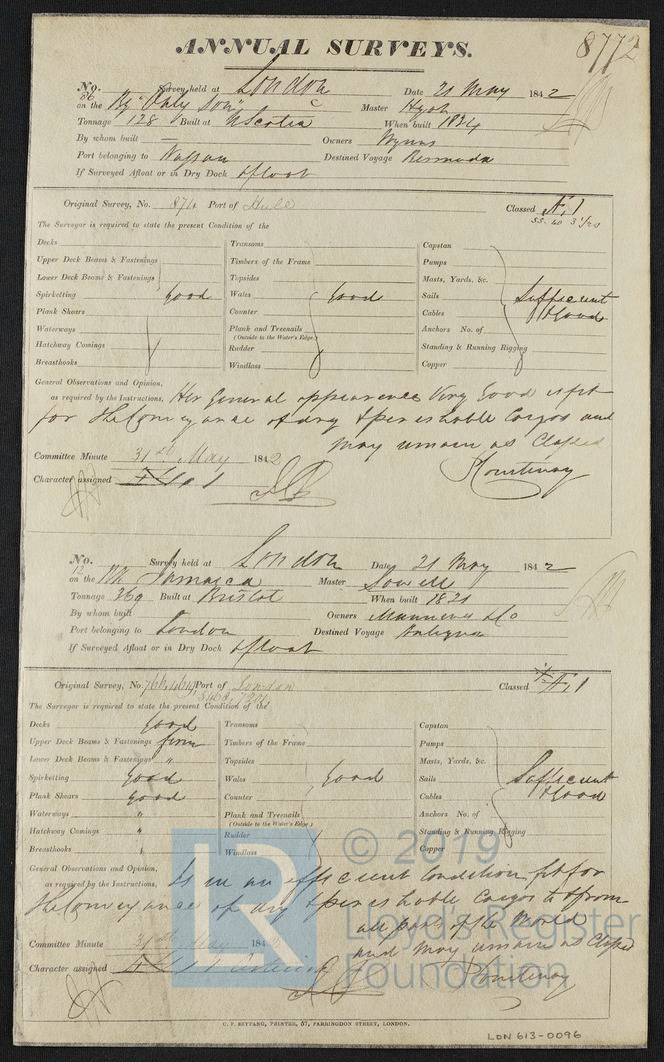 ANNUAL SURVEYS.
8772
No. 86 Survey held at London Date 21 May 1842
on the Bg "Only Son" Master
Tonnage 128 Built at NScotia When built 1824
By whom built Owners Wynns
Port belonging to Nassau Destined Voyage Bermuda
If Surveyed Afloat or in Dry Dock Afloat
Original Survey, No. 874 Port of Hull Classed Æ 1
SS. No 3 1/2rs
The Surveyor is required to state the present Condition of the
Decks Transoms Capstan
Upper Deck Beams & Fastenings Timbers of the Frame Pumps
Lower Deck Beams & Fastenings Topsides Masts, Yards, &c.
Spirketting Good Wales Good Sails Sufficient
Plank Shears Counter Cables & Good
Waterways Plank and Treenails Anchors No. of
(Outside to the Water's Edge.)
Hatchway Comings Rudder Standing & Running Rigging
Breasthooks Windlass Copper
General Observations and Opinion,
as required by the Instructions, Her General appearance Very Good is fit
for the Conveyance of dry & perishable Cargos and
May remain as Classed
Committee Minute 31st May 1842
Character assigned Æ 1 Courtenay
No. 12 Survey held at London Date 21 May 1842
on the Jamaica Master Sowell
Tonnage 369 Built at Bristol When built 1821
By whom built Owners & Co
Port belonging to London Destined Voyage Antigua
If Surveyed Afloat or in Dry Dock Afloat
Original Survey, No. Port of London Classed Æ 1
The Surveyor is required to state the present Condition of the
Decks Good Transoms Capstan
Upper Deck Beams & Fastenings firm Timbers of the Frame Pumps
Lower Deck Beams & Fastenings " Topsides Masts, Yards, &c.
Spirketting Good Wales Good Sails Sufficient
Plank Shears Good Counter Cables & Good
Waterways " Plank and Treenails Anchors No. of
(Outside to the Water's Edge.)
Hatchway Comings " Rudder Standing & Running Rigging
Breasthooks " Windlass Copper
© 2019
Lloyd's Register
Foundation
LR
General Observations and Opinion,
as required by the Instructions, Is in an efficient Condition fit for
the Conveyance of dry & perishable Cargos to & from
all parts of the World
and May remain as Classed
Committee Minute 31st May 1842
Character assigned Æ 1 Courtenay
C. F. SEYFANG, PRINTER, 57, FARRINGDON STREET, LONDON.
LDN 613-0096